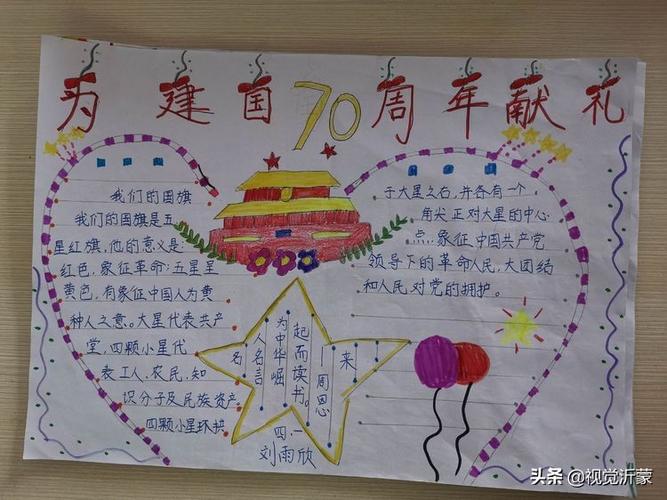 为建国70周年献礼
我们的国旗
我们的国旗是五
星红旗,他的意义是:
红色,象征革命;五星呈
黄色,有象征中国人为黄
种人之意。大星代表共产
堂,四颗小星代
表工人、农民、知
识分子及民族资产
四颗小星环拱
于大星之右,并各有一个
角尖正对大星的中心
点,象征中国共产党
领导下的革命人民,大团结
和人民对党的拥护。
名人名言
为中华崛
起而读书。
——周恩来
四·一
刘雨欣
头条 @视觉沂蒙